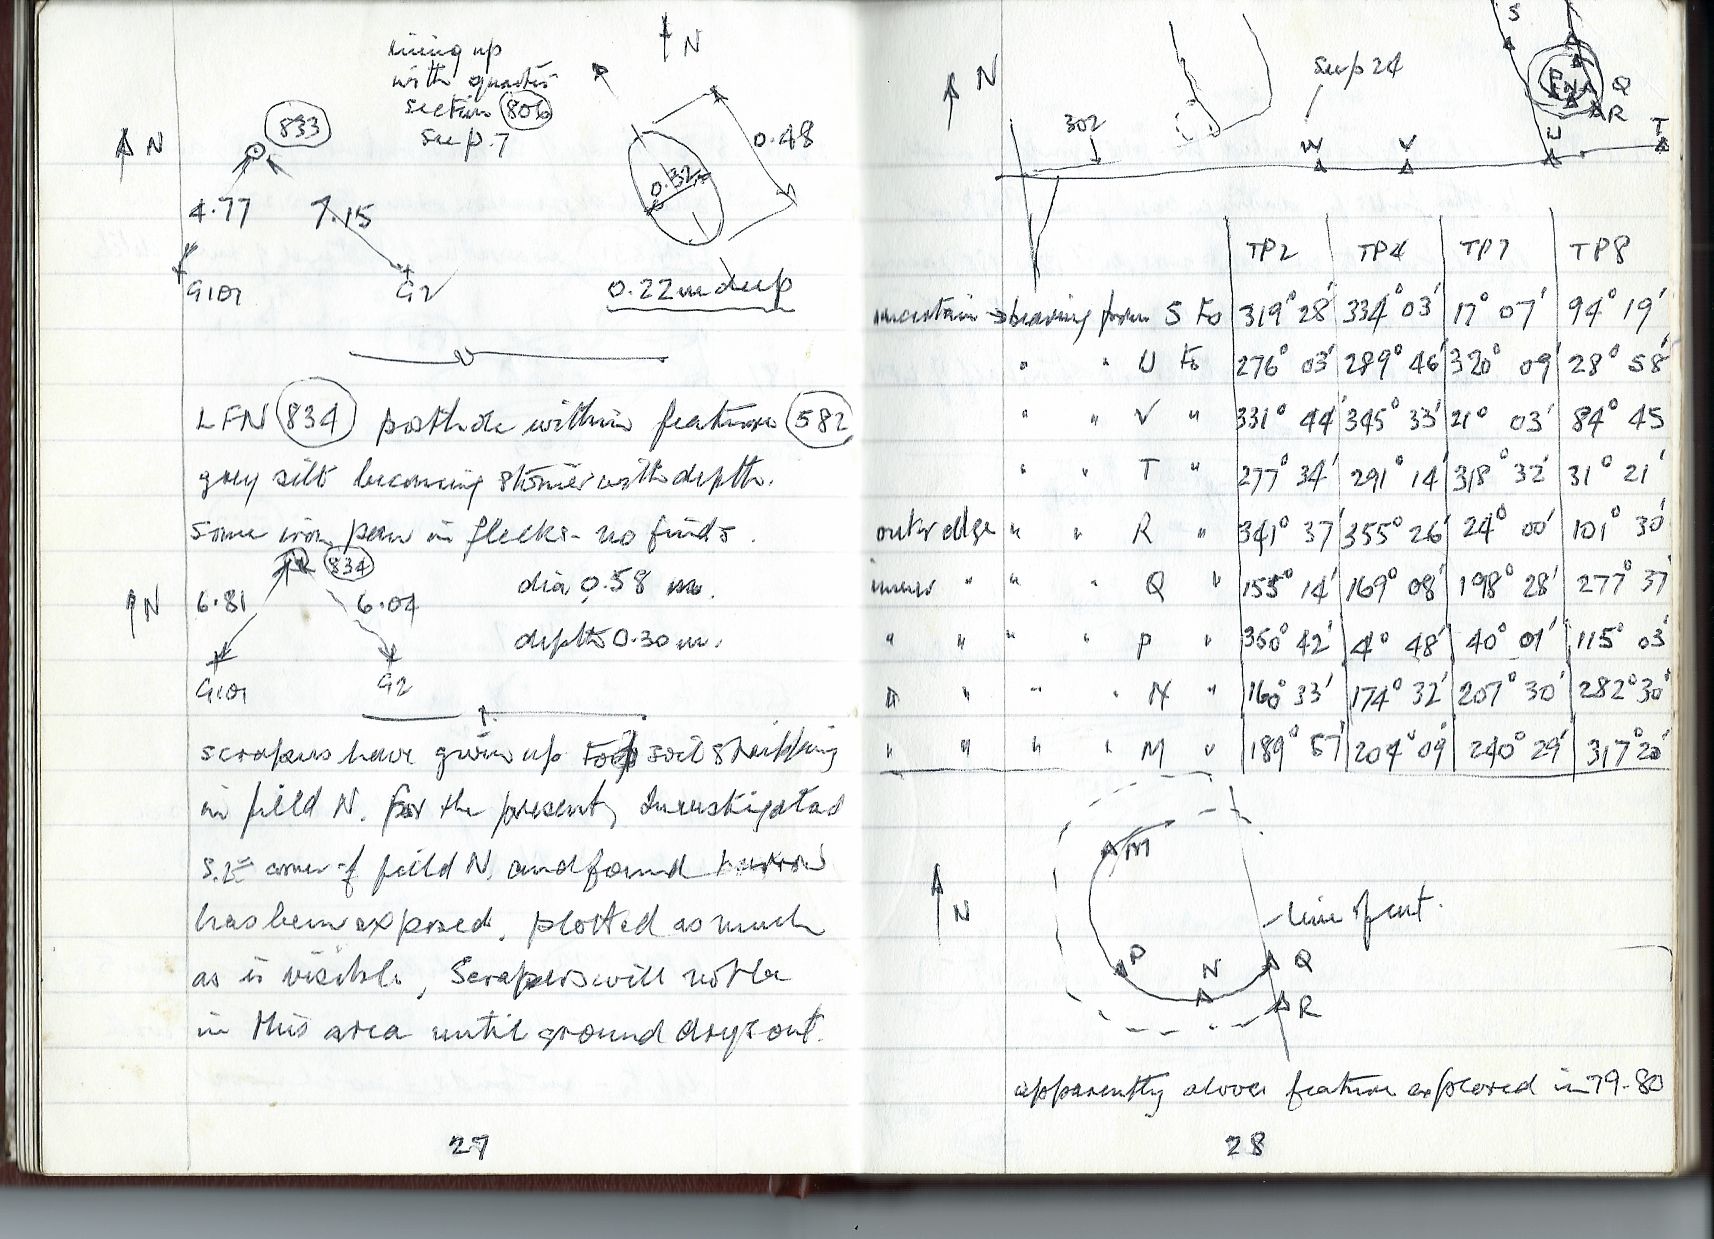 lining up
with quarter
section 806
see p. 7
N
N
833
0.48
0.32
4.77 7.15
G101 G2
0.22 m deep
LFN 834 posthole within feature 582
grey silt becoming stonier with depth.
some iron pan in flecks - no finds.
834
N 6.81 6.04 dia 0.58 m.
depth 0.30 m.
G101 G2
scrapers have given up Top soil stripping
in field N. For the present, Investigated
S.E. corner of field N, and found barrow
has been exposed, plotted as much
as is visible, Scrapers will not be
in this area until ground dry's out.
27
S
N see p 24
P N Q
R
302
W V U T
TP2 TP4 TP7 TP8
uncertain → bearing from S to 319° 28' 334° 03' 17° 07' 94° 19'
" " U to 276° 03' 289° 46' 320° 09' 28° 58'
" " V " 331° 44' 345° 33' 21° 03' 84° 45
" " T " 277° 34' 291° 14' 318° 32' 31° 21'
outer edge " " R " 341° 37' 355° 26' 24° 00' 101° 30'
inner " " " Q " 155° 14' 169° 08' 198° 28' 277° 37'
" " " P " 350° 42' 4° 48' 40° 01' 115° 03'
" " " " N " 160° 33' 174° 32' 207° 30' 282° 30'
" " " " M " 189° 57' 204° 09' 240° 29' 317° 20'
M
N line of cut.
P N Q
R
apparently above feature explored in 79-80
28